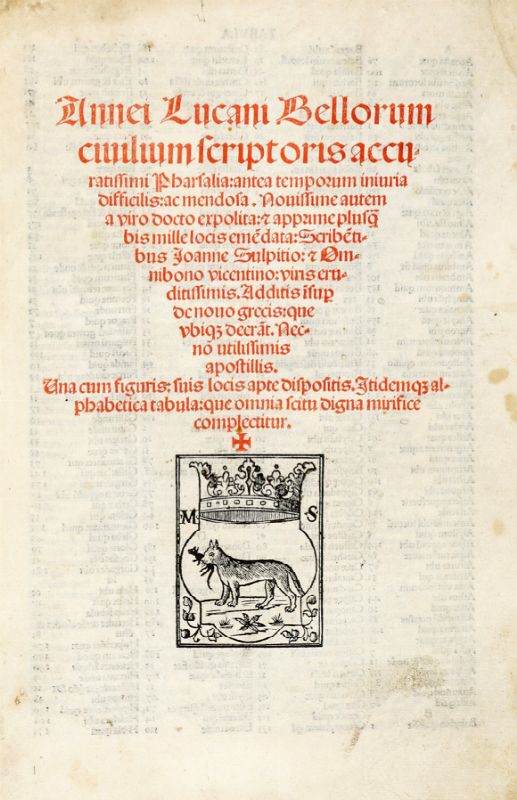 Annei Lucani Bellorum
ciuilium scriptoris accu-
ratissimi Pharsalia: antea temporum iniuria
difficilis: ac mendosa. Nouissime autem
a viro docto expolita: ⁊ apprime plusq̃
bis mille locis emẽdata: Scribẽti-
bus Joanne Sulpitio: ⁊ Om-
nibono vicentino: viris eru-
ditissimis. Additis ĩsup
de nouo grecis: que
vbiqꝫ deerãt. Nec-
nõ utilissimis
apostillis.
Una cum figuris: suis locis apte dispositis. Itidemqꝫ al-
phabetica tabula: que omnia scitu digna mirifice
complectitur.
M S